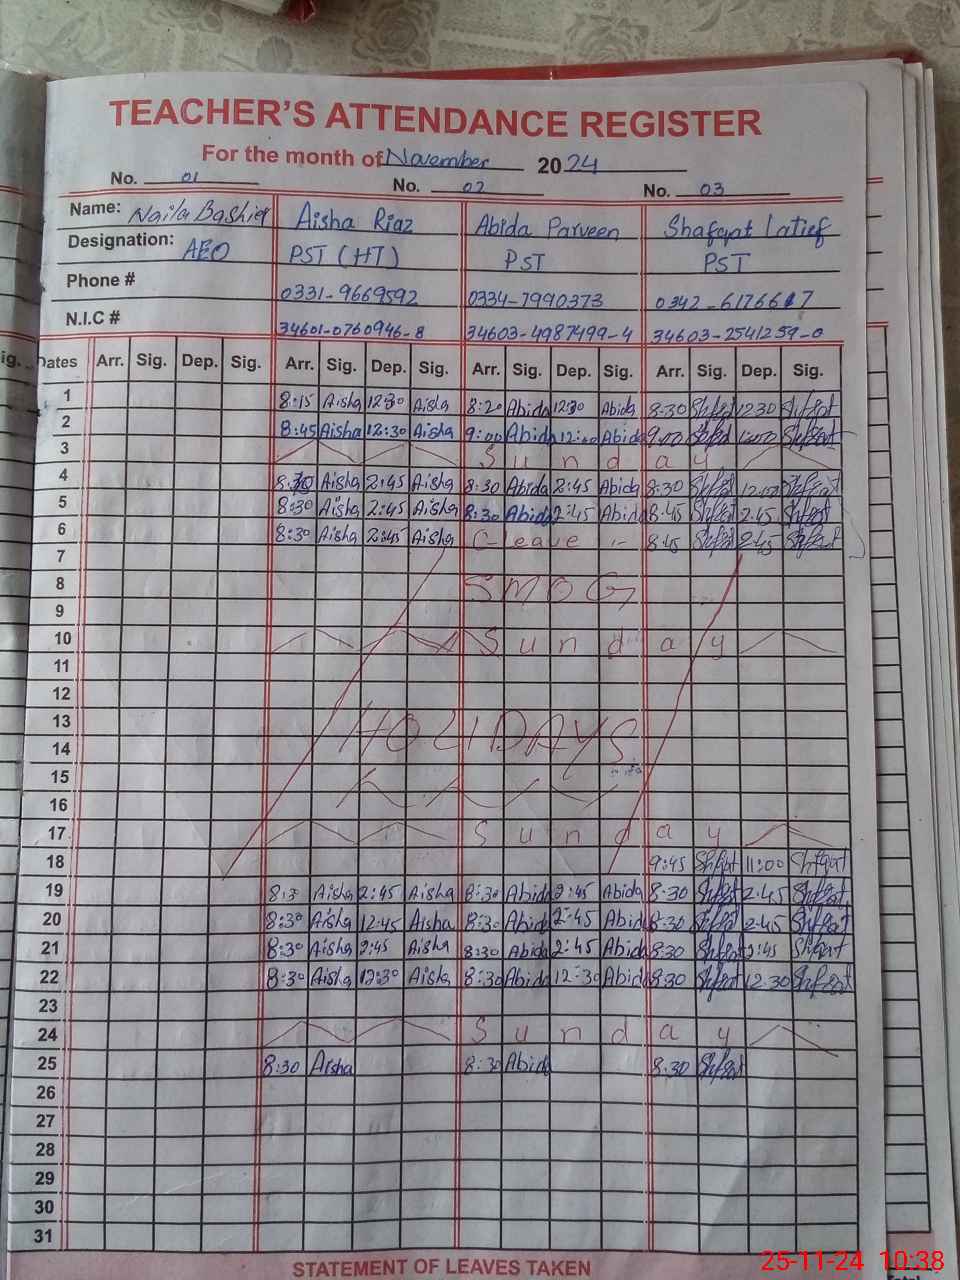 TEACHER'S ATTENDANCE REGISTER
For the month of November 2024
No. 01 No. 02 No. 03
Name: Naila Bashier Aisha Riaz Abida Parveen Shafqat Latief
Designation: AEO PST (HT) PST PST
Phone # 0331-9669592 0334-7990373 0342-6176617
N.I.C # 34601-0760946-8 34603-4987499-4 34603-2541259-0
Dates Arr. Sig. Dep. Sig. Arr. Sig. Dep. Sig. Arr. Sig. Dep. Sig. Arr. Sig. Dep. Sig.
1 8:15 Aisha 12:30 Aisha 8:20 Abida 12:30 Abida 8:30 Shfqat 12:30 Shfqat
2 8:45 Aisha 12:30 Aisha 9:00 Abida 12:00 Abida 9:00 Shfqat Shfqat
3 Sunday
4 8:30 Aisha 2:45 Aisha 8:30 Abida 2:45 Abida 8:30 Shfqat Shfqat
5 8:30 Aisha 2:45 Aisha 8:30 Abida 2:45 Abida 8:45 Shfqat 2:45 Shfqat
6 8:30 Aisha 2:45 Aisha C-leave :- 8:45 Shfqat 2:45 Shfqat
7
8 SMOG
9
10 Sunday
11
12
13 HOLIDAYS
14
15
16
17 Sunday
18 9:45 Shfqat 11:00 Shfqat
19 8:3 Aisha 2:45 Aisha 8:30 Abida 2:45 Abida 8:30 Shfqat 2:45 Shfqat
20 8:30 Aisha 12:45 Aisha 8:30 Abida 2:45 Abida 8:30 Shfqat 2:45 Shfqat
21 8:30 Aisha 2:45 Aisha 8:30 Abida 2:45 Abida 8:30 Shfqat 2:45 Shfqat
22 8:30 Aisha 12:30 Aisha 8:30 Abida 12:30 Abida 8:30 Shfqat 12:30 Shfqat
23
24 Sunday
25 8:30 Aisha 8:30 Abida 8:30 Shfqat
26
27
28
29
30
31
STATEMENT OF LEAVES TAKEN
25-11-24 10:38